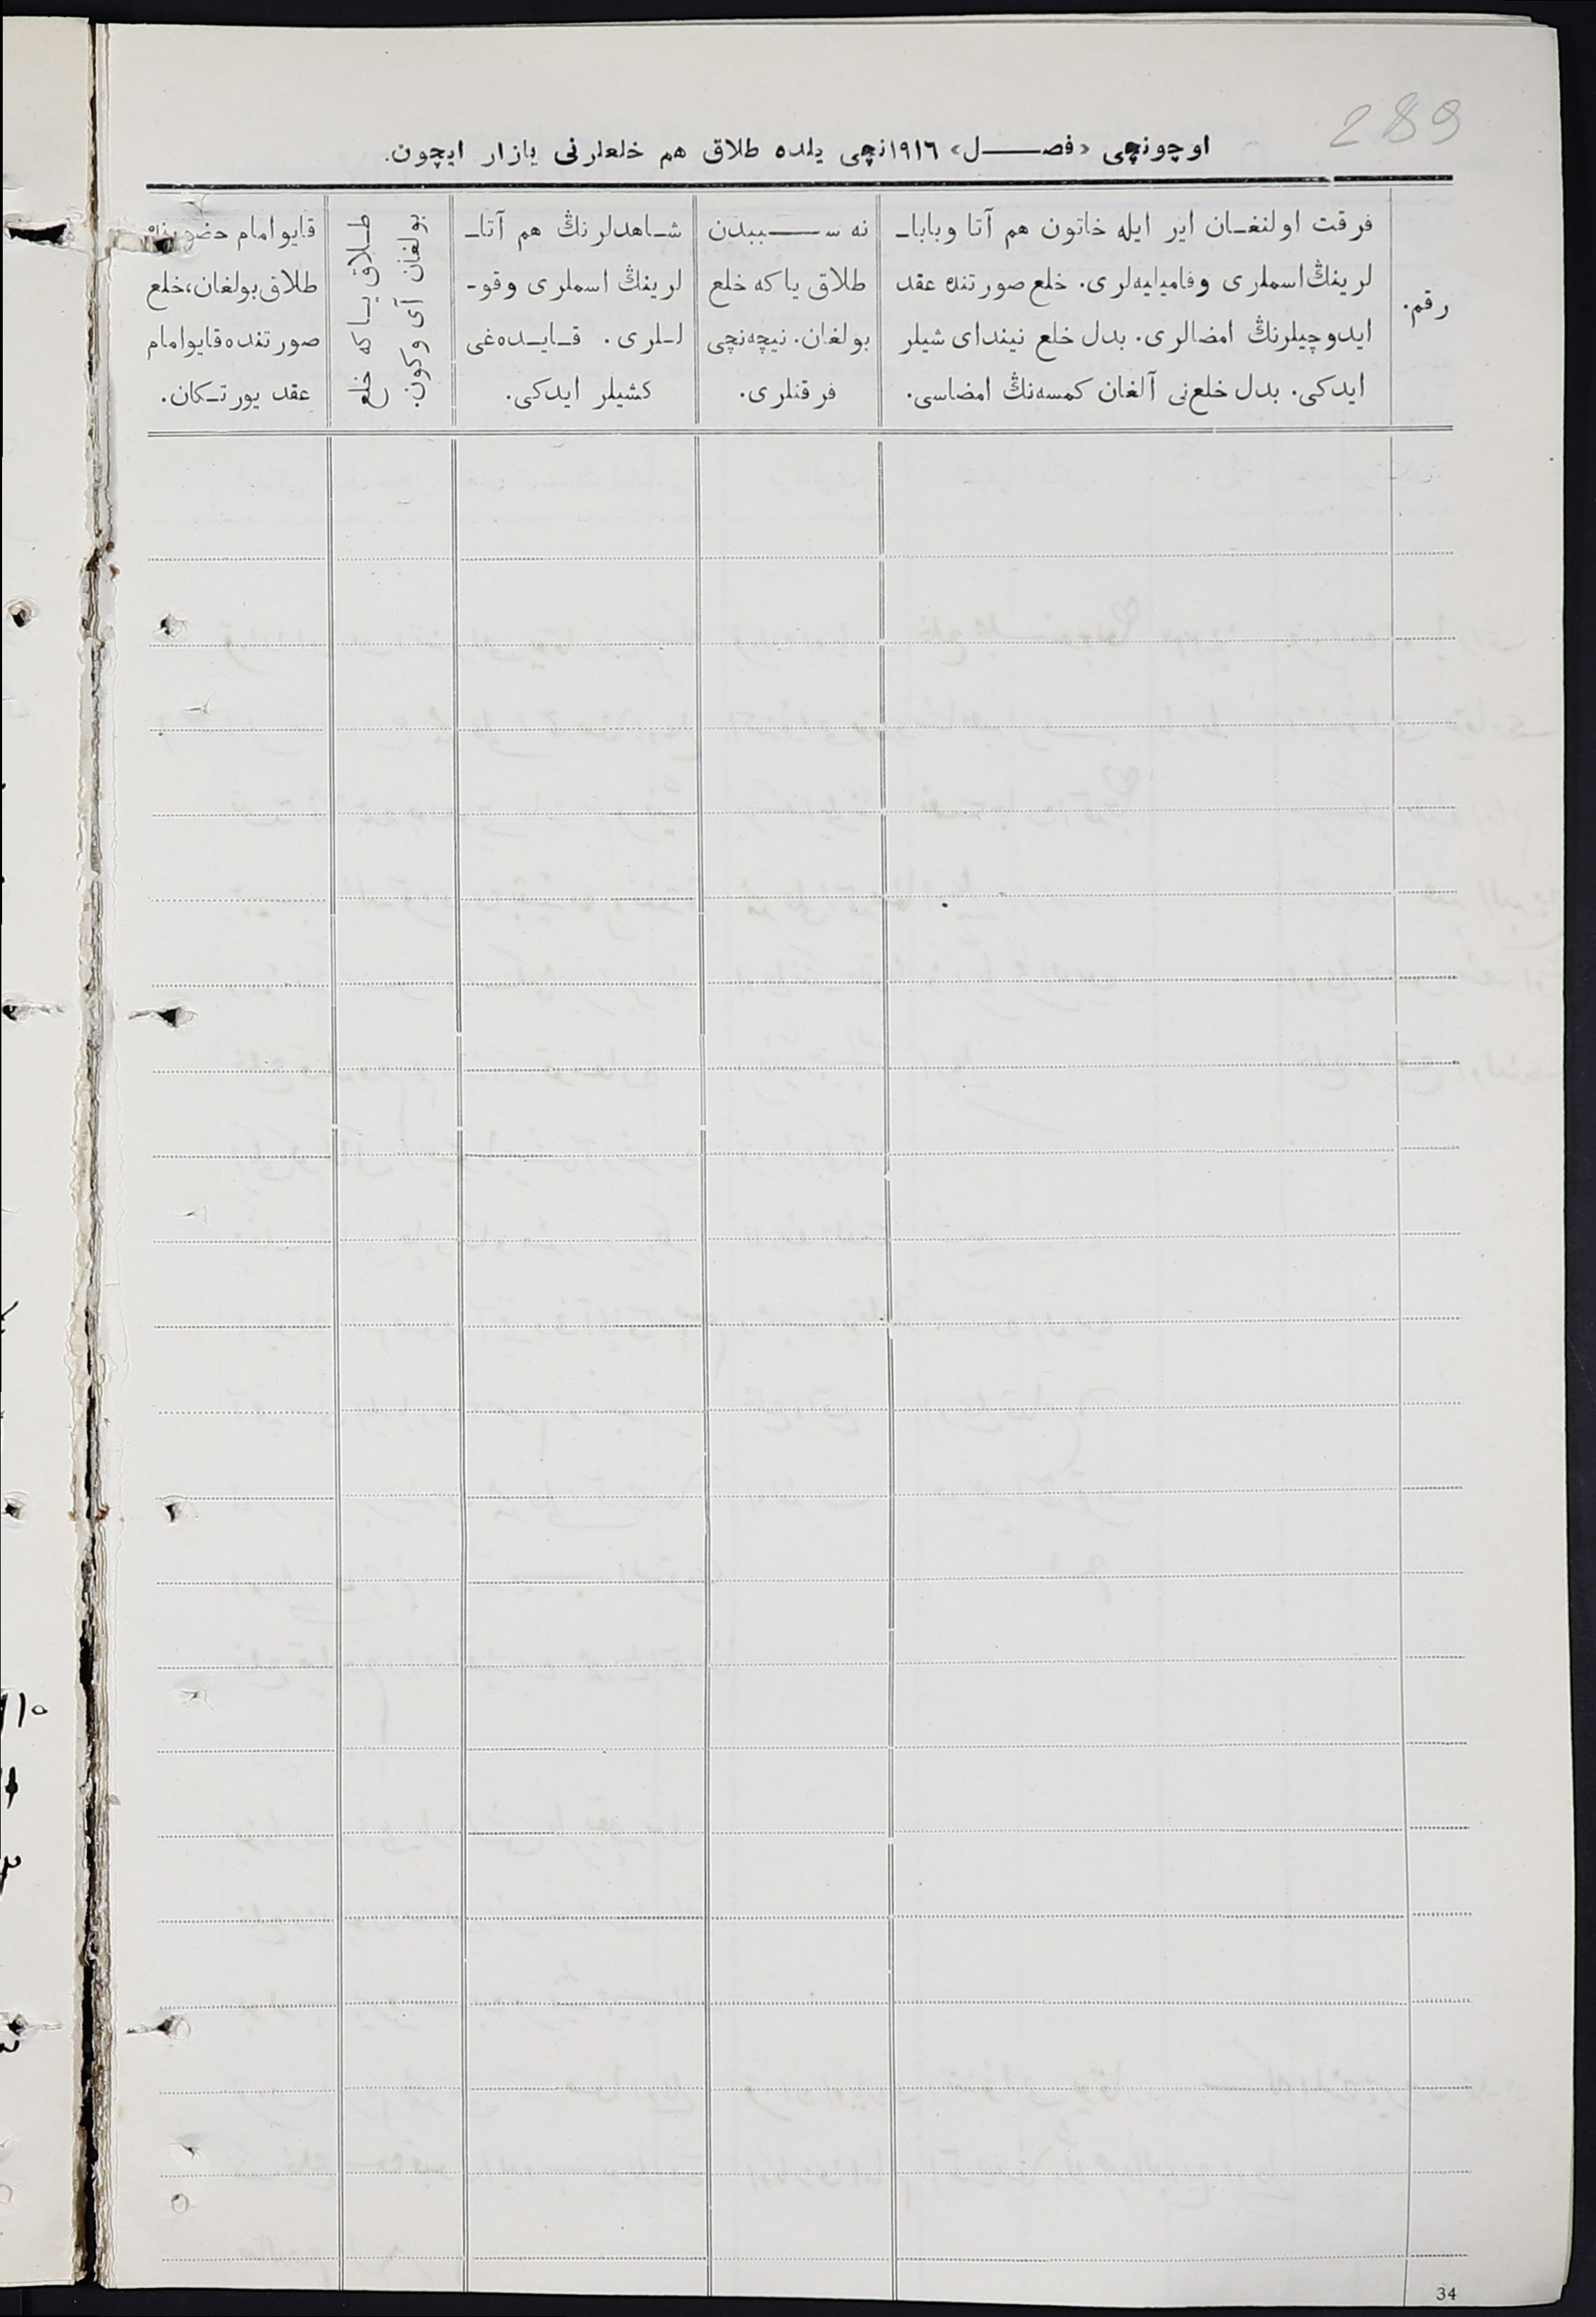 289
اوچونچی «فصل» ۱۹۱٦نچی یلده طلاق هم خلعلرنی یازار ایچون.
رقم.
فرقت اولنغان ایر ایله خاتون هم آتا وبابا‌ـ
لرینڭ اسملری وفامیلیه‌لری. خلع صورتنده عقد
ایدوچیلرنڭ امضالری. بدل خلع نیندای شیلر
ایدکی. بدل خلع‌نی آلغان کمسه‌نڭ امضاسی.
نه سببدن
طلاق یا که خلع
بولغان. نیچه‌نچی
فرقتلری.
شاهدلرنڭ هم آتا‌ـ
لرینڭ اسملری وقو‌ـ
للری. قایده‌غی
کشیلر ایدکی.
طلاق یا که خلع
بولغان آی وکون.
قایو امام حضورنده
طلاق بولغان، خلع
صورتنده قایو امام
عقد یورتکان.
34